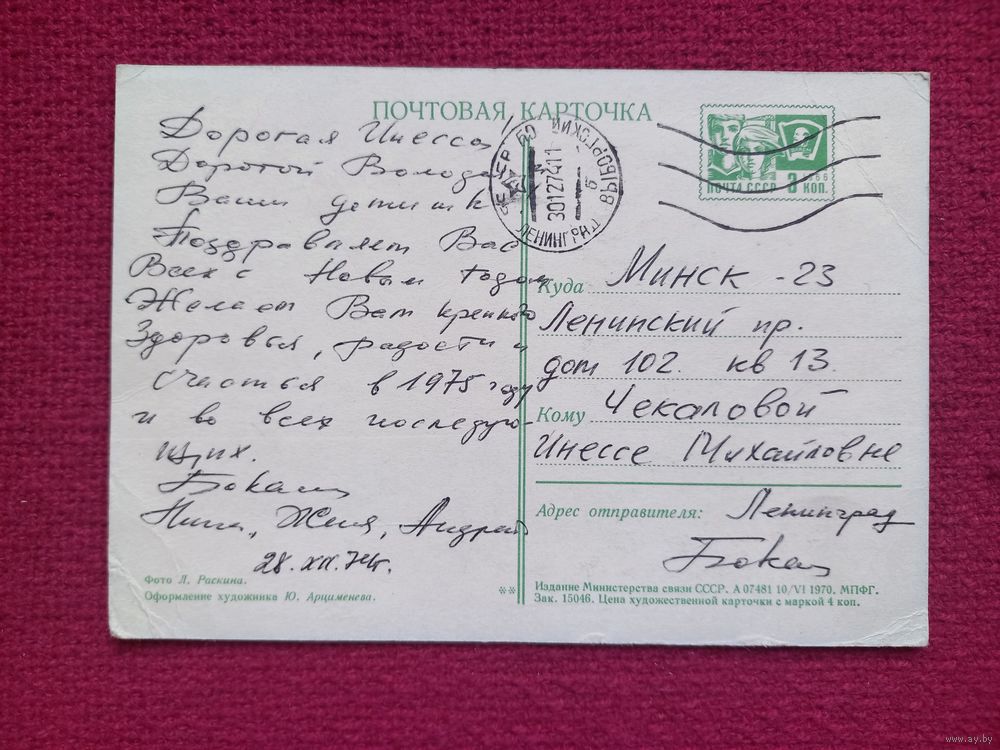 ПОЧТОВАЯ КАРТОЧКА
Дорогая Инесса,
Дорогой
Ваши детишк
Поздравляем Вас
Всех с Новым годом
Желаем Вам крепкого
Здоровья, радости и
счастья в 1975 году
и во всех последую-
щих.
Нина, Женя, Андрей
28.XII.74г.
Фото Л. Раскина.
Оформление художника Ю. Арцименева.
**
ПОЧТА СССР 3 КОП.
ЛЕНИНГРАД
301274 11
Куда Минск - 23
Ленинский пр.
дом 102. кв 13.
Кому Чекаловой
Инессе Михайловне
Адрес отправителя: Ленинград
Издание Министерства связи СССР. А 07481 10/VI 1970. МПФГ.
Зак. 15046. Цена художественной карточки с маркой 4 коп.
www.ay.by